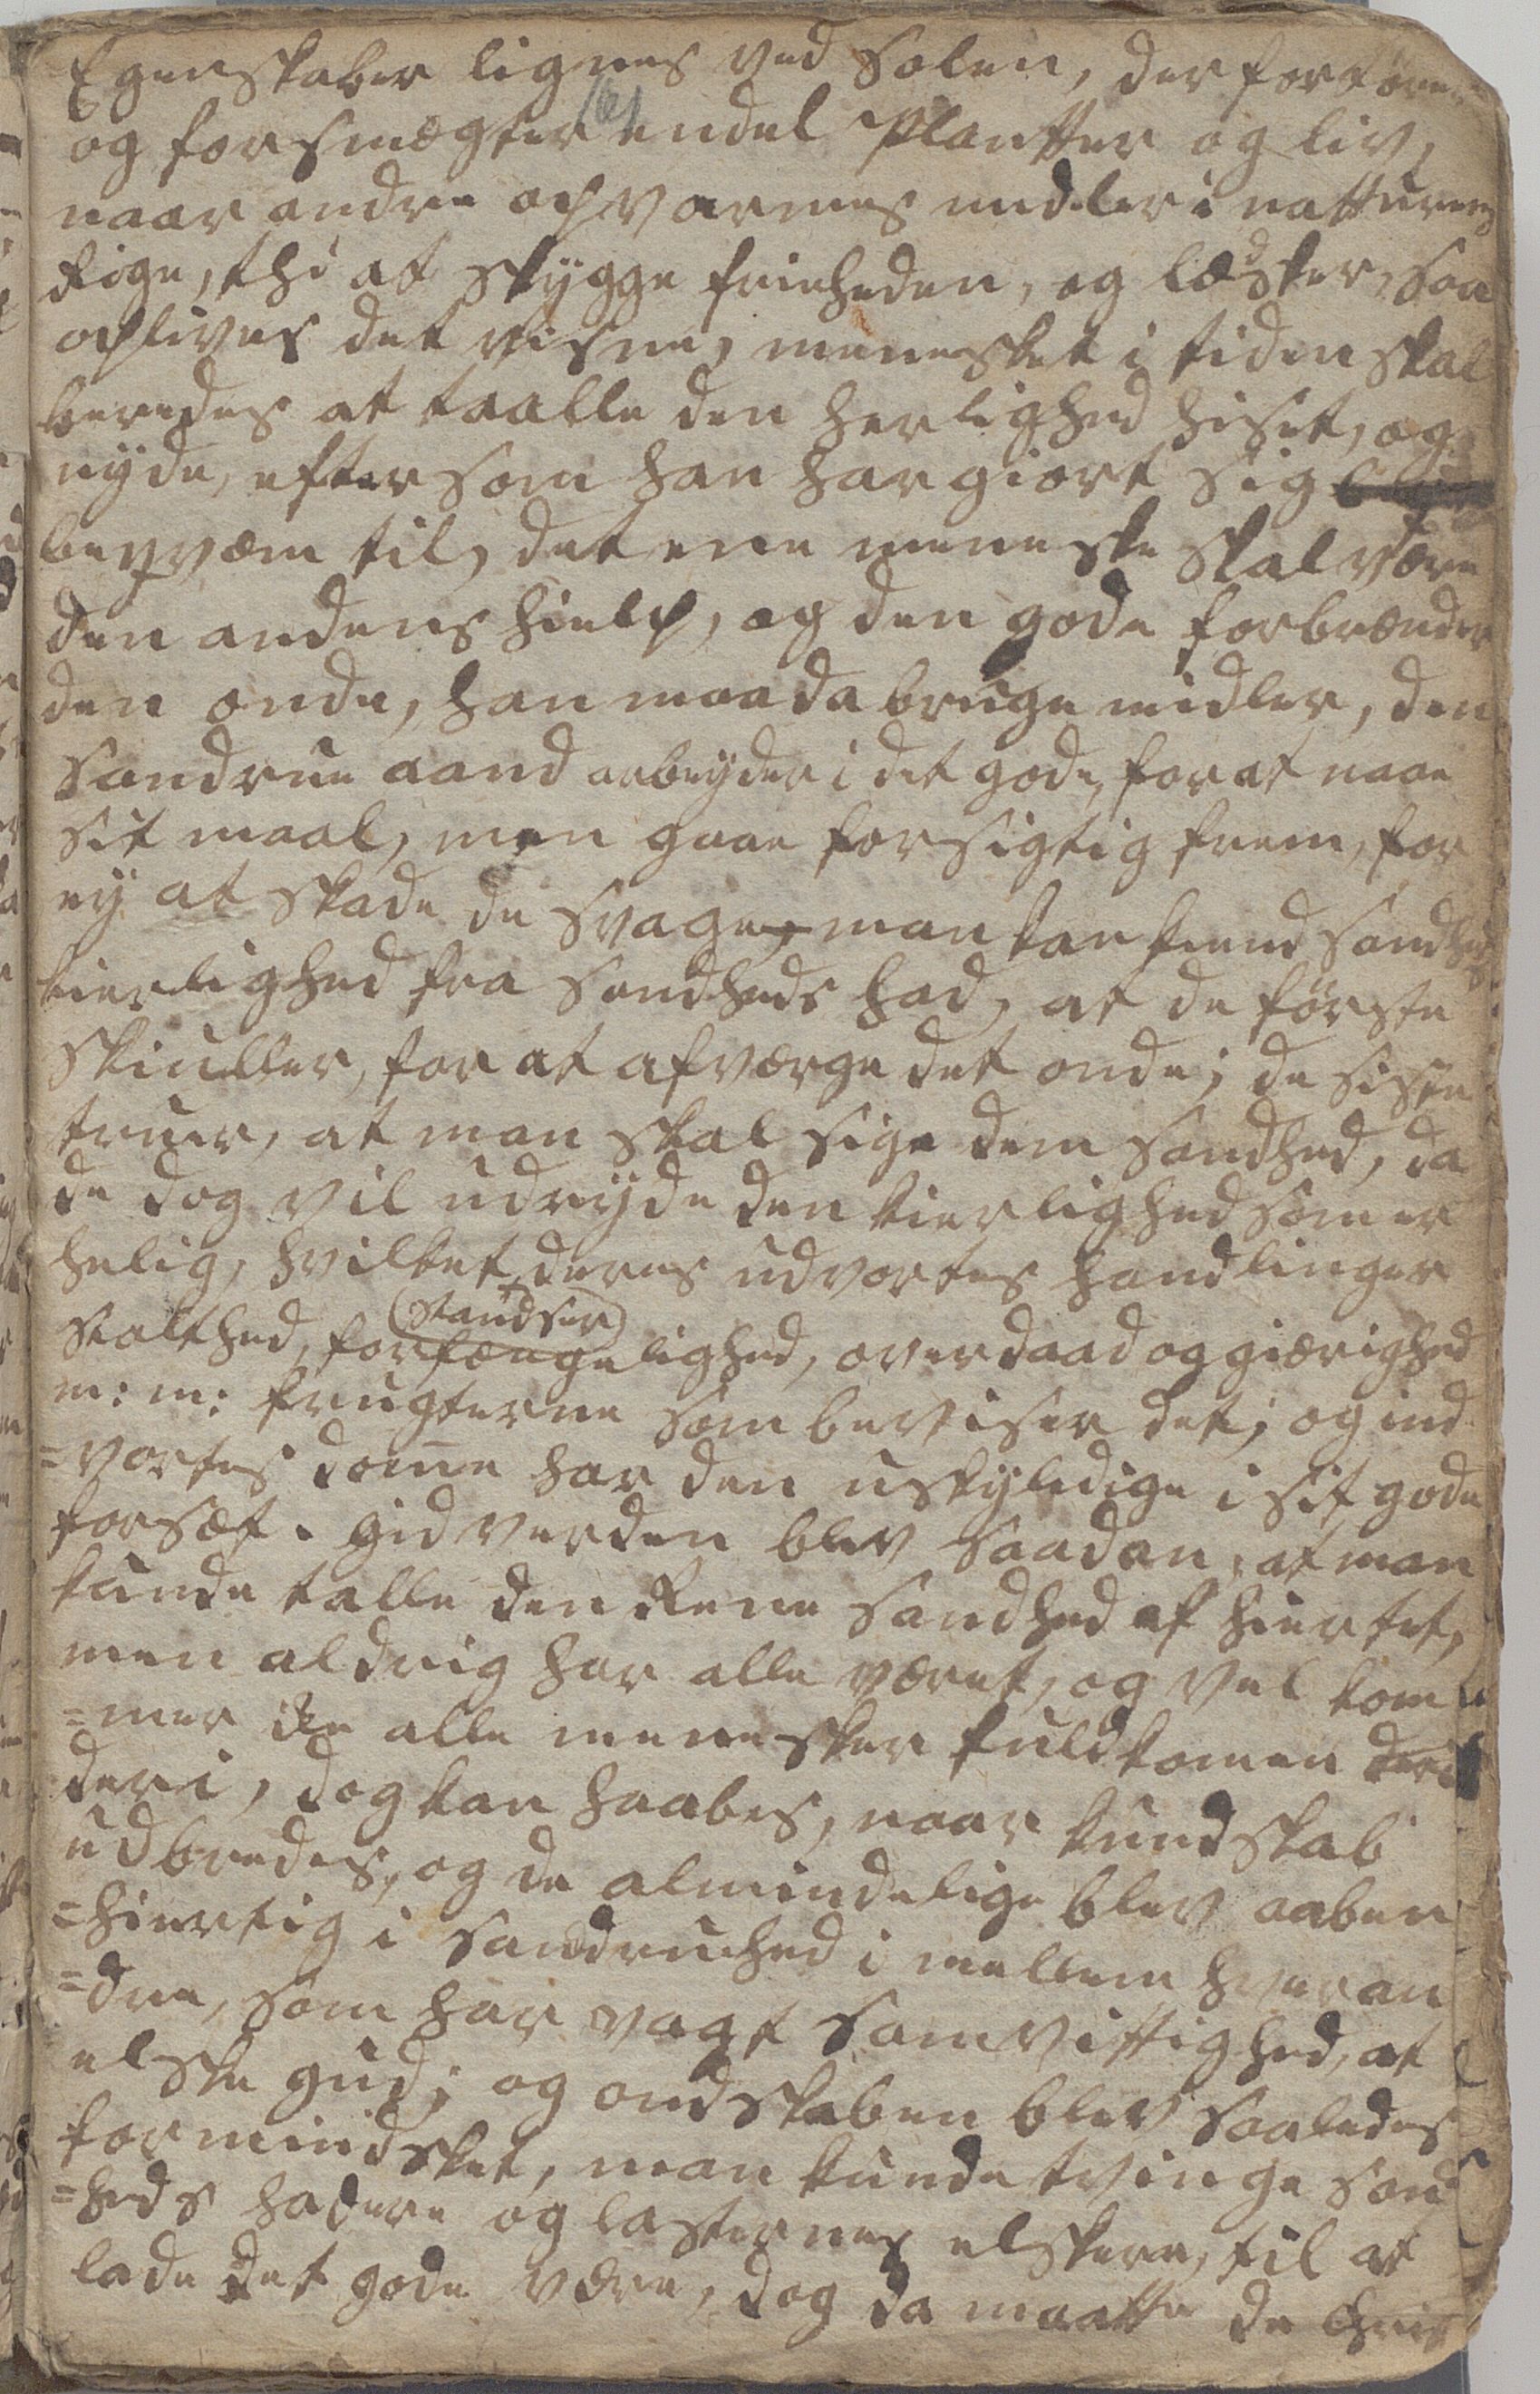 Egenskaber lignes ved Solen, der fortörrer
og forsmægter endel Plantter og liv,
naar andre opvarmes midler i natturens
Rige, thi at skygge frieheden, og lædsker, saa
oplives det visne, menesket i tiden skal
beredes at taalle den herlighed hiset, og
nyde, efter som han har giort sig
beqvæm til, det ene meneske skal være
den andens hielp, og den gode forbrænder
den onde, han maa da bruge midler, den
Sandrue aand arbeyder i det gode, for at naae
sit maal, men gaae forsigtig frem, for
ey at skade de svage, man kan kiend Sandheds
kierlighed fra Sandheds had, at de förste
skiuller, for at afværge det onde; de siste
truer, at man skal sige dem Sandhed, da
de dog vil udryde den kierlighed som er
helig, hvilket deres udvortes handlinger
(Standser)
stalthed, forfængelighed, overdaad og giærighed
m: m: frugterne som beviser det; og ind
=vortes domme har den uskyldige i sit gode
forsæt. gid verden blev saadan, at man
kunde talle den Rene Sandhed af hiertet,
men aldrig har alle været, og vel kom
=mer ike alle menesker fuldkomen
deri, dog kan haabes, naar kundskab
udbredes, og de almindelige blev aaben
=hiertig i Sandruhed i mellem hveran
=dre, som har vagt Samvittighed, at
elske gud; og ondskaben blev saaledes
formindsket, man kunde tvinge Sand
=heds hadere og lasternes elskere, til at
lade det gode være, dog da maatte de Chris